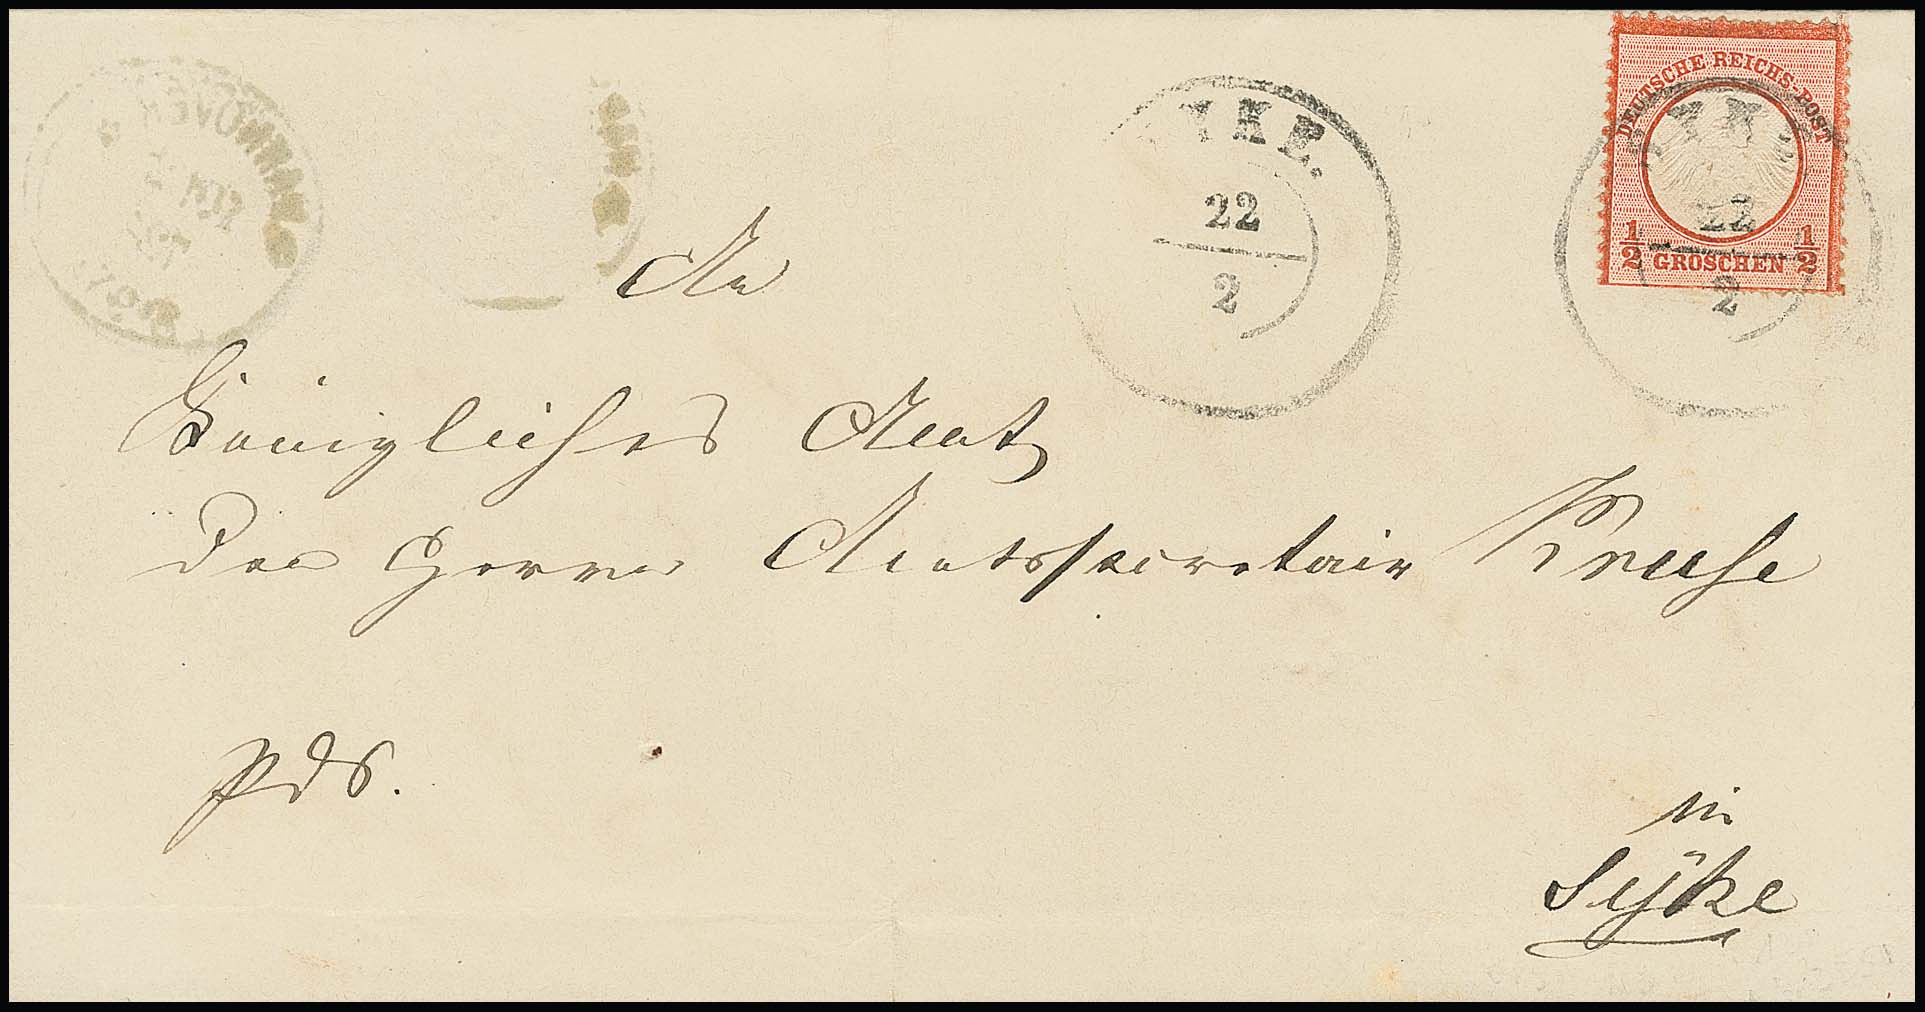 DEUTSCHE REICHS-POST
1/2 GROSCHEN 1/2
YKE.
22
2
22
2
An
Königliches Amt
den Herrn Amtssecretair Kruse
pds.
in
Syke